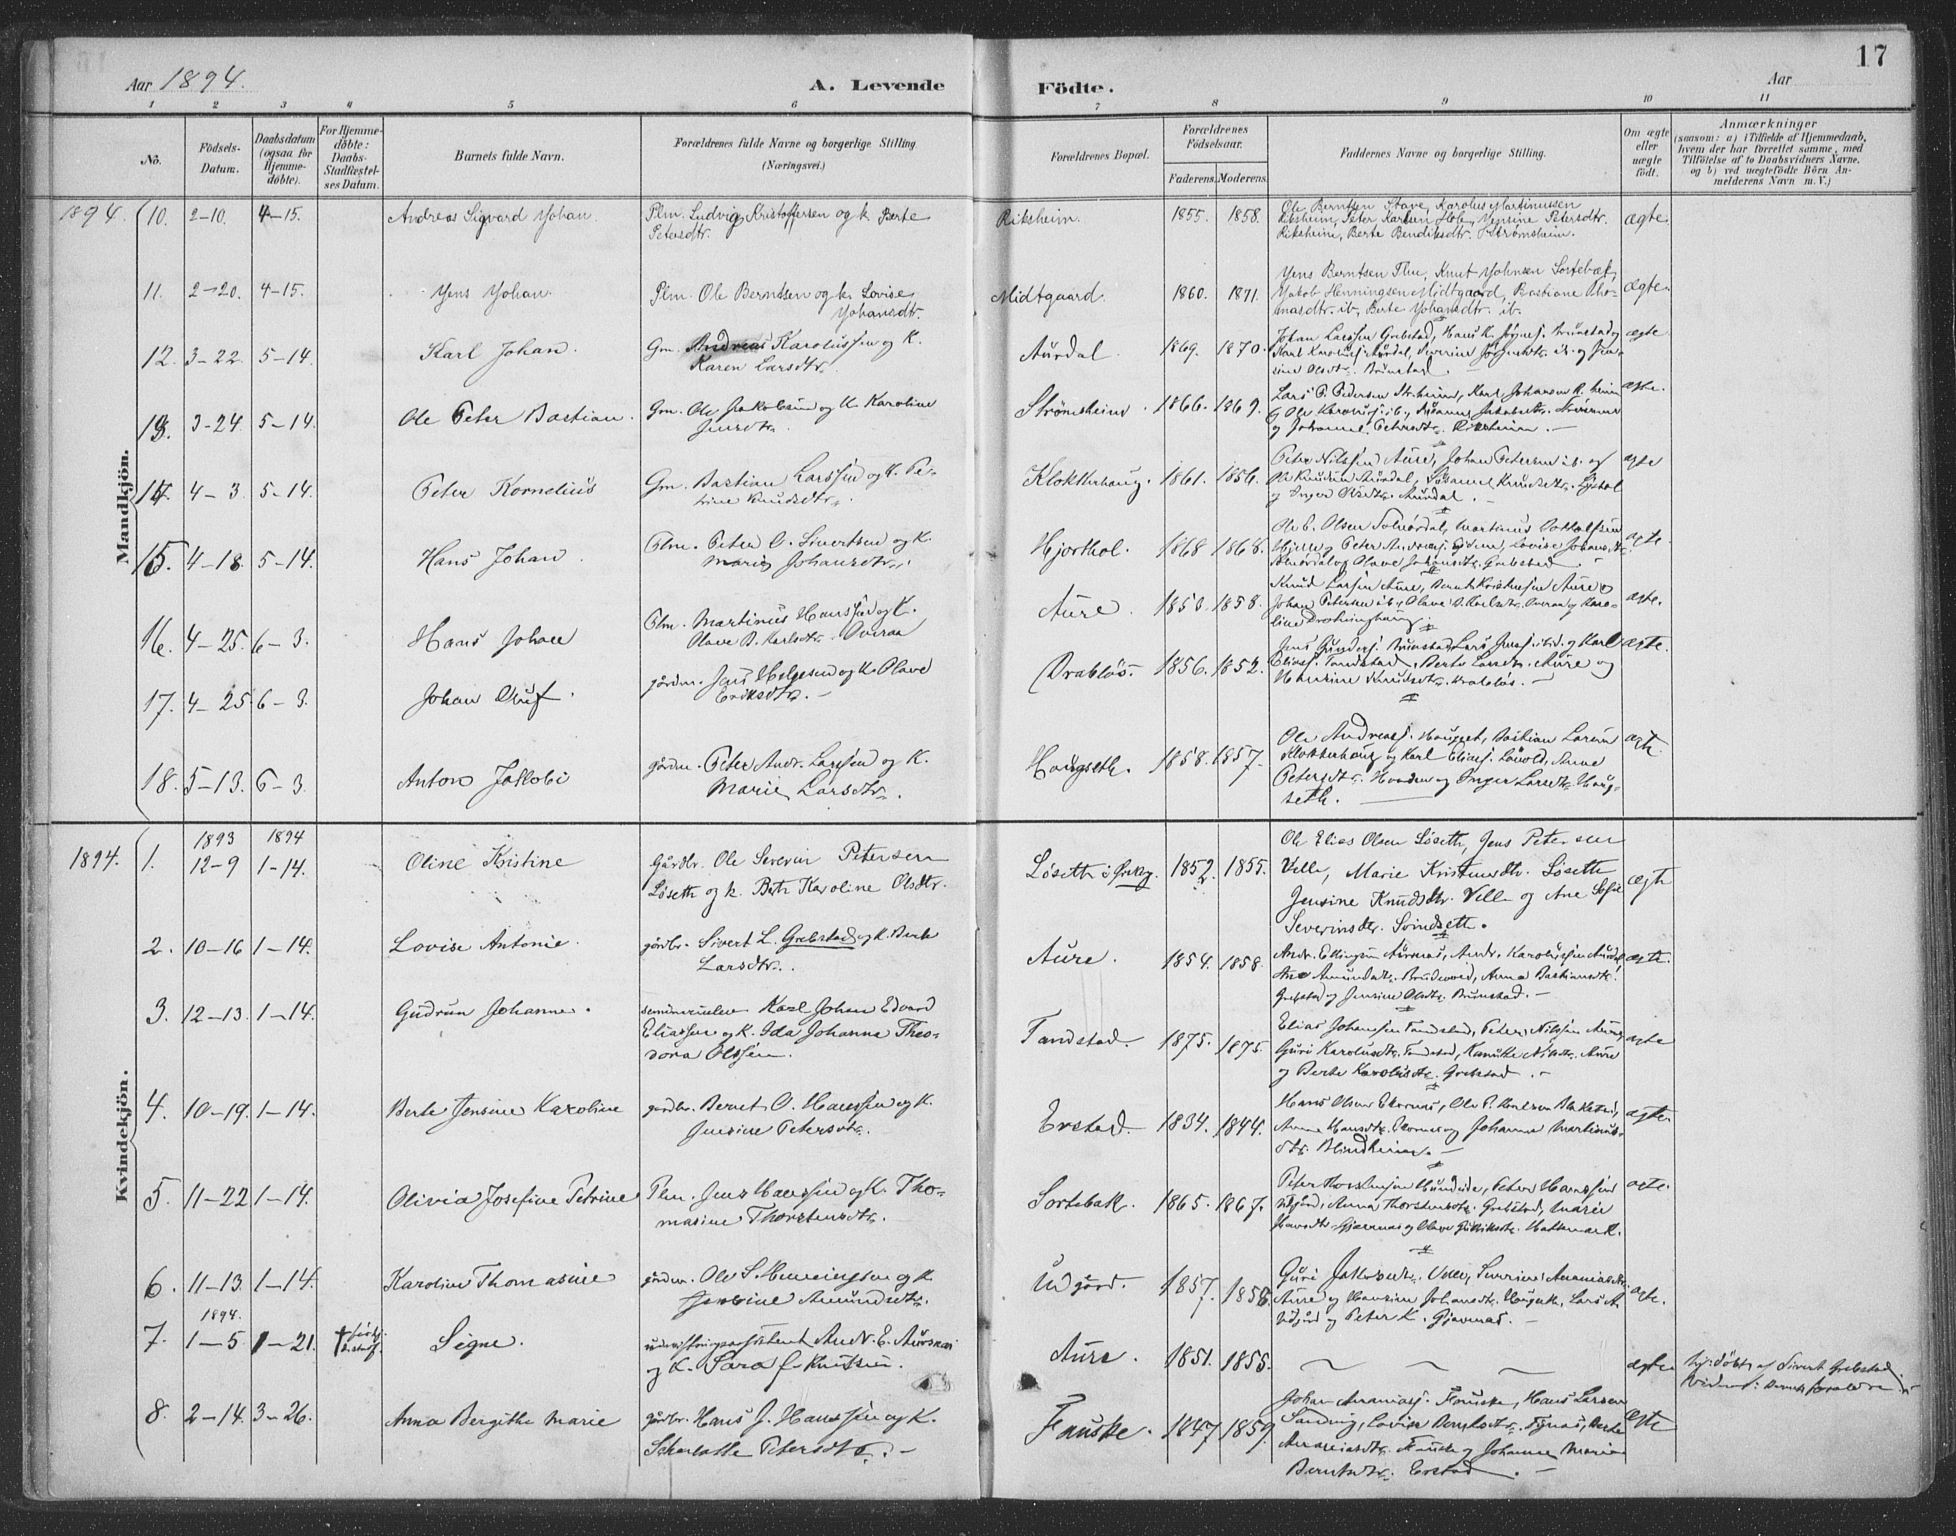 17
Aar 1894.
A. Levende
Födte.
Aar
1 2 3 4 5 6 7 8 9 10 11
No.
Födsels-
Datum.
Daabsdatum
(ogsaa for
Hjemme-
døbte).
For Hjemme-
døbte:
Daabs-
Stadfæstel-
ses Datum.
Barnets fulde Navn.
Forældrenes fulde Navne og borgerlige Stilling
(Næringsvei.)
Forældrenes Bopæl.
Forældrenes
Födselsaar.
Faderens. Moderens.
Faddernes Navne og borgerlige Stilling.
Om ægte
eller
uægte
födt.
Anmærkninger
(saasom: a) i Tilfælde af Hjemmedaab,
hvem der har forrettet samme, med
Tilföielse af to Daabsvidners Navne,
og b) ved uægtefödte Börn An-
melderens Navn m. V.)
Mandkjön.
1894. 10. 2-10. 4-15. Andreas Sigvard Johan. Plm. Ludvig Kristoffersen og k. Berte
Petersdtr.
Riksheim. 1855. 1858. Ole Berntsen Stave, Karolus Martinussen
Riksheim, Peter Karlsen Hole, Jensine Petersdtr.
Riksheim, Berte Bendiksdtr. Strømsheim. ægte.
11. 2-20. 4-15. Jens Johan. Plm. Ole Berntsen og k. Lovise
Johansdtr.
Midtgaard. 1860. 1871. Jens Berntsen Plm, Knut Johnsen Sortebæk,
Jakob Henningsen Midtgaard, Bastiane Tho-
masdtr. ib, Berte Johansdtr. ib. ægte.
12. 3-22. 5-14. Karl Johan. Gm. Andreas Karolussen og K.
Karen Larsdtr.
Aurdal. 1869. 1870. Johan Larssen Grebstad, Hans K. Jørgs. Brunstad og
Karl Karolus. Aurdal, Severine Jørgensdtr. ib. og Jen-
sine Olsdtr. Brunstad. ægte
13. 3-24. 5-14. Ole Peter Bastian. Gm. Ole Jakobsen og K. Karoline
Jensdtr.
Strømsheim. 1866. 1869. Lars P. Pedersen Strheim, Karl Johansen R.heim
og Ole Karolus. ib., Susanne Jakobsdtr.
og Johanne Petersdtr. Riksheim. ægte.
14. 4-3. 5-14. Peter Kornelius Gm. Bastian Larssen og K. Pe-
trine Knudsdtr.
Klokkerhaug. 1861. 1856. Peter Nilssen Aure, Johan Petersen ib. og
Ole Knudsen Aurdal, Susanne Knudsdtr.
og Inger Olsdtr. Aurdal. ægte
15. 4-18. 5-14. Hans Johan. Plm. Peter O. Sivertsen og K.
Marie Johansdtr.
Hjorthol. 1868 1868. Ole C. Olsen Solnørdal, Martinus
Hjelle og Peter Andreas. Lovise Johansdtr.
Solnørdal og Olave Johansdtr. Grebstad. ægte.
16. 4-25. 6-3. Hans Johan Plm. Martinus Hanssen og K.
Olave B. Karlsdtr. Overaa
Aure. 1858. 1858. Knud Larsen Aure, Bernt Kristensen Aure og
Johan Petersen ib., Olave B. Karlsdtr. Overaa og Karo-
line Dronninghaug. ægte.
17. 4-25. 6-3. Johan Oluf. gårdm. Jens Helgesen og K. Olave
Eriksdtr.
Drabløs. 1856. 1852. Jens Gunders. Brunstad, Lars Jens. ibid. og Karl
Elias. Tandstad, Berte Larsdtr. Aure og
Hansine Knudsdtr. Drabløs. ægte.
18. 5-13. 6-3. Anton Jakobi gårdm. Peter Andr. Larssen og K.
Marie Larsdtr.
Haugseth. 1858. 1857. Ole Andreas. Haugset, Bastian Larsen
Klokkerhaug og Karl Elias. Løvold, Anne
Petersdtr. Hovden og Inger Larsdtr. Haug-
seth. ægte.
Kvindekjön.
1894. 1. 1893 12-9 1894 1-14. Oline Kristine Gårdbr. Ole Severin Petersen
Løseth og k. Berte Karoline Olsdtr.
Løseth i Ørskog. 1852. 1855. Ole Elias Olsen Løseth, Jens Petersen
Velle, Marie Kristensdtr. Løseth
Jensine Knudsdtr. Velle og Ane Sofie
Severinsdtr. Svindseth. ægte
2. 10-16 1-14. Lovise Antonie. gårdbr. Sivert L. Grebstad og K. Berte
Larsdtr.
Aure. 1854. 1858. Andr. Ellingsen Aursnes, Andr. Karolussen Aurdal
Ane Amundsdtr. Brudevold, Anna Bastiansdtr.
Grebstad og Jensine Olsdtr. Brunstad. ægte.
3. 12-13. 1-14. Gudrun Johanne. seminarielev Karl Johan Edvard
Eliassen og K. Ida Johanna Theo-
dora Olssen.
Tandstad. 1875. 1875. Elias Johansen Tandstad, Peter Nilssen Aure,
Guri Karolusdtr. Tandstad, Kanutte Nilsdtr. Aure
og Berte Karolusdtr. Grebstad. ægte
4. 10-19. 1-14. Berte Jensine Karoline gårdbr. Bernt O. Hanssen og K.
Jensine Petersdtr.
Erstad. 1834. 1844. Hans Olsen Ekornes, Ole P. Karlsen Blakstad,
Anne Hansdtr. Ekornes og Johanne Martinus-
dtr. Blindheim. ægte.
5. 11-22 1-14. Olivia Josefine Petrine Plm. Jens Hanssen og K. Tho-
masine Thorstensdtr.
Sortebak. 1865. 1867. Peter Thorstensen Hundeide, Peter Hanssen
Udgård, Anna Thorstensdtr. Grebstad, Marie
Hansdtr. Gjævenes og Olave Hattemark. ægte.
6. 11-13. 1-14. Karoline Thomasine gårdm. Ole S. Henningsen og K.
Jensine Amundsdtr.
Udgård. 1857. 1858. Guri Jakobsdtr. Velle, Severine Ananiasdtr.
Aure og Hansine Johansdtr. Lars A.
Udgård og Peter K. Gjævenes. ægte.
7. 1894. 1-5. 1-21. Signe. undervisningsassistent Andr. E. Aursnes
og K. Sara f. Knutsen.
Aure. 1851. 1855. ægte Hj. døbt af Sivert Grebstad.
Vidner: Barnets forældre.
8. 2-14. 3-26. Anna Bergithe Marie gårdbr. Hans J. Hanssen og K.
Scharlotte Petersdtr.
Fauske. 1847 1859 Johan Ananias. Fauske, Hans Larsen
Sandvig, Lovise Berntsdtr. Tynes, Berte
Ananiasdtr. Fauske og Johanne Marie
Berntsdtr. Erstad. ægte